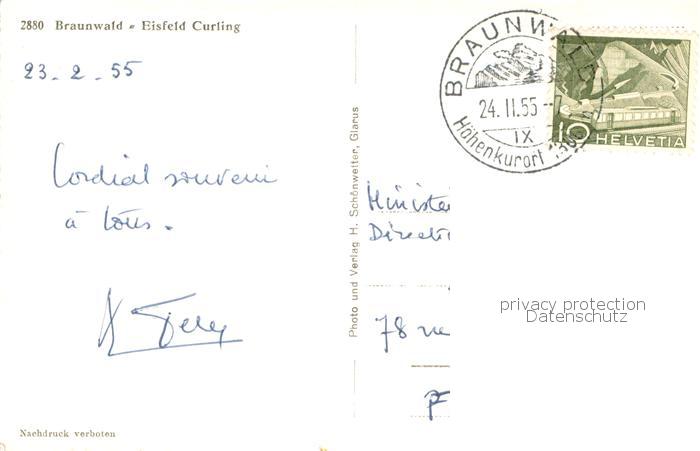 2880 Braunwald - Eisfeld Curling
23. 2. 55
Cordial souvenir
à tous.
Nachdruck verboten
Photo und Verlag H. Schönwetter, Glarus
BRAUNWALD
24.II.55-7
IX
Höhenkurort
10 HELVETIA
Ministe
Direct
78 rue
privacy protection
Datenschutz